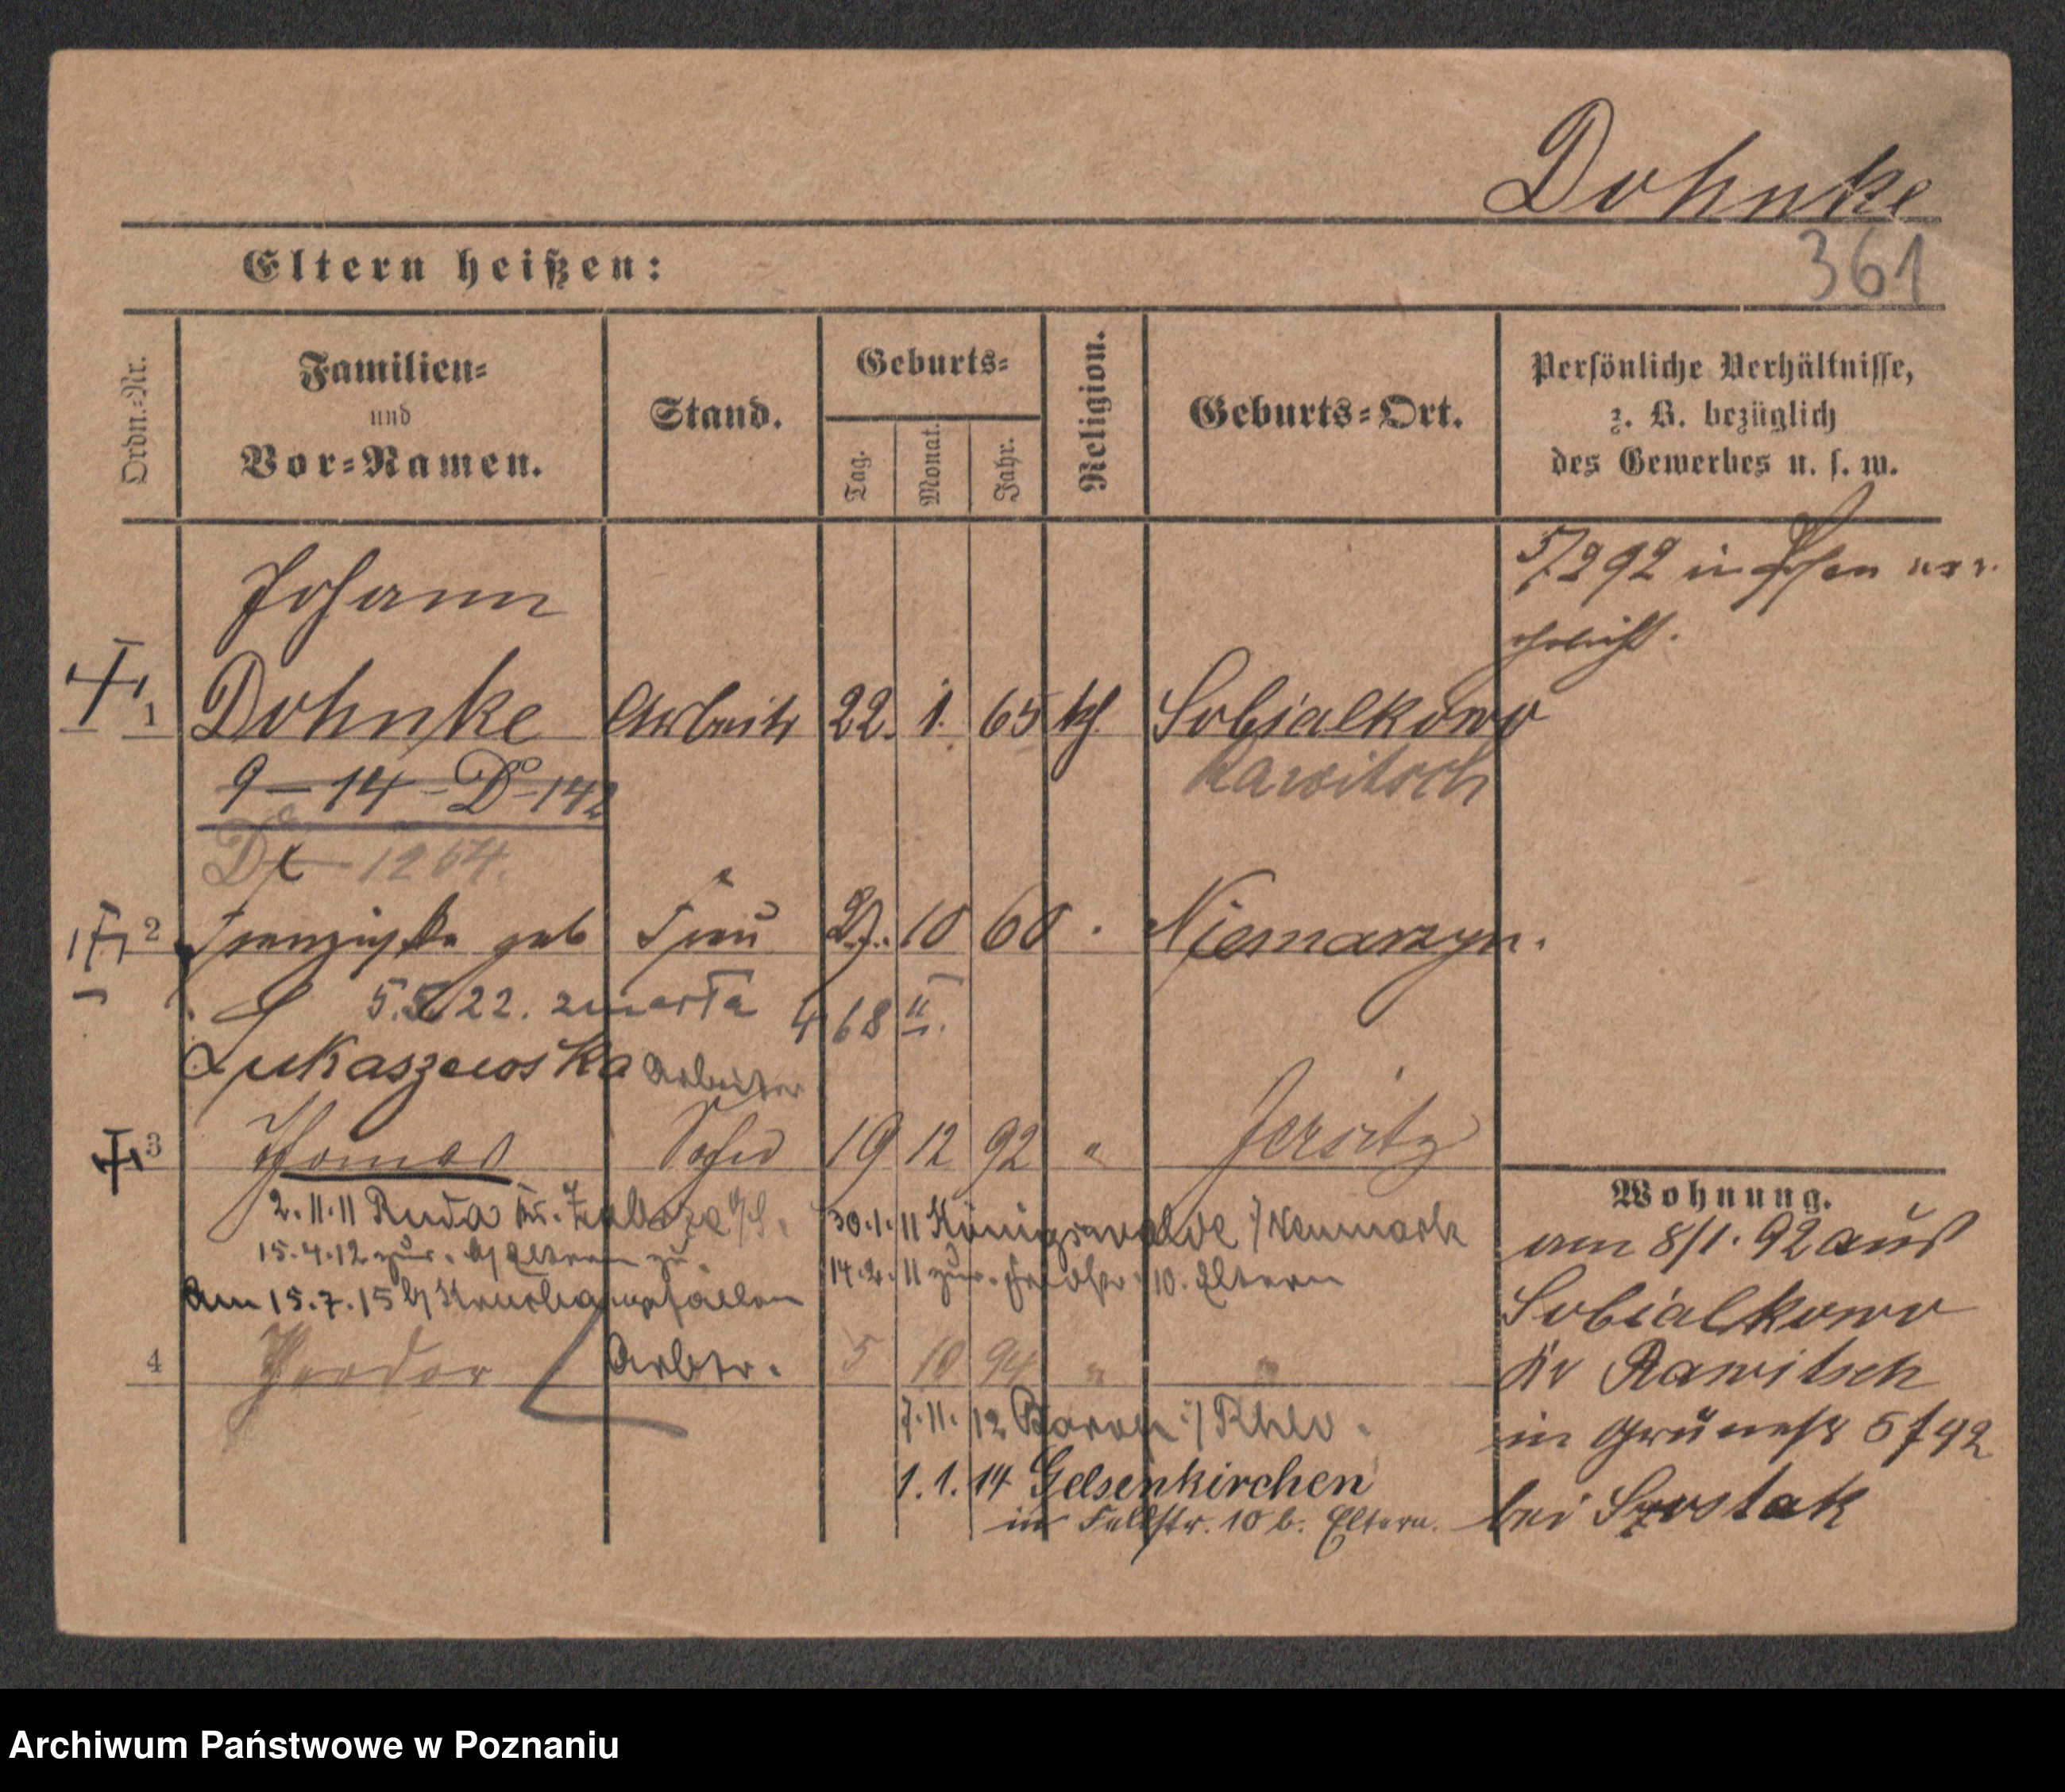 Dohnke
361
Eltern heißen:
Ordn.-Nr.
Familien-
und
Vor-Namen.
Stand.
Geburts-
Tag.
Monat.
Jahr.
Religion.
Geburts-Ort.
Persönliche Verhältnisse,
z. B. bezüglich
des Gewerbes u. s. w.
Johann
1 Dohnke Arbeiter 22. 1. 65 kf. Sobialkowo
5/2 92 in Posen ver
ehelicht.
9-14-D-142
Rawitsch
1264.
2 Franziska geb Frau 27. 10 60 Niemarzyn.
5.5.22. zmarła 4 68 II
Lukaszewska Arbeiter
3 Thomas Sohn 19 12 92 " Jersitz
2.11.11 Ruda Kr. Zabrze O/S. 30.1.11 Königswalde i/Neumark
15.4.12 zur. b/ Eltern zu. 14.2.11 zur. 10. Eltern
Am 15.7.15 gefallen
4 Theodor Arbtr. 5 10 94 " "
7.11.12 i/Rhld.
1.1.14 Gelsenkirchen
in Feldstr. 10 b. Eltern.
Wohnung.
am 8/1. 92 aus
Sobialkowo
Kr Rawitsch
in Grünestr 5 f 92
bei Szostak
Archiwum Państwowe w Poznaniu